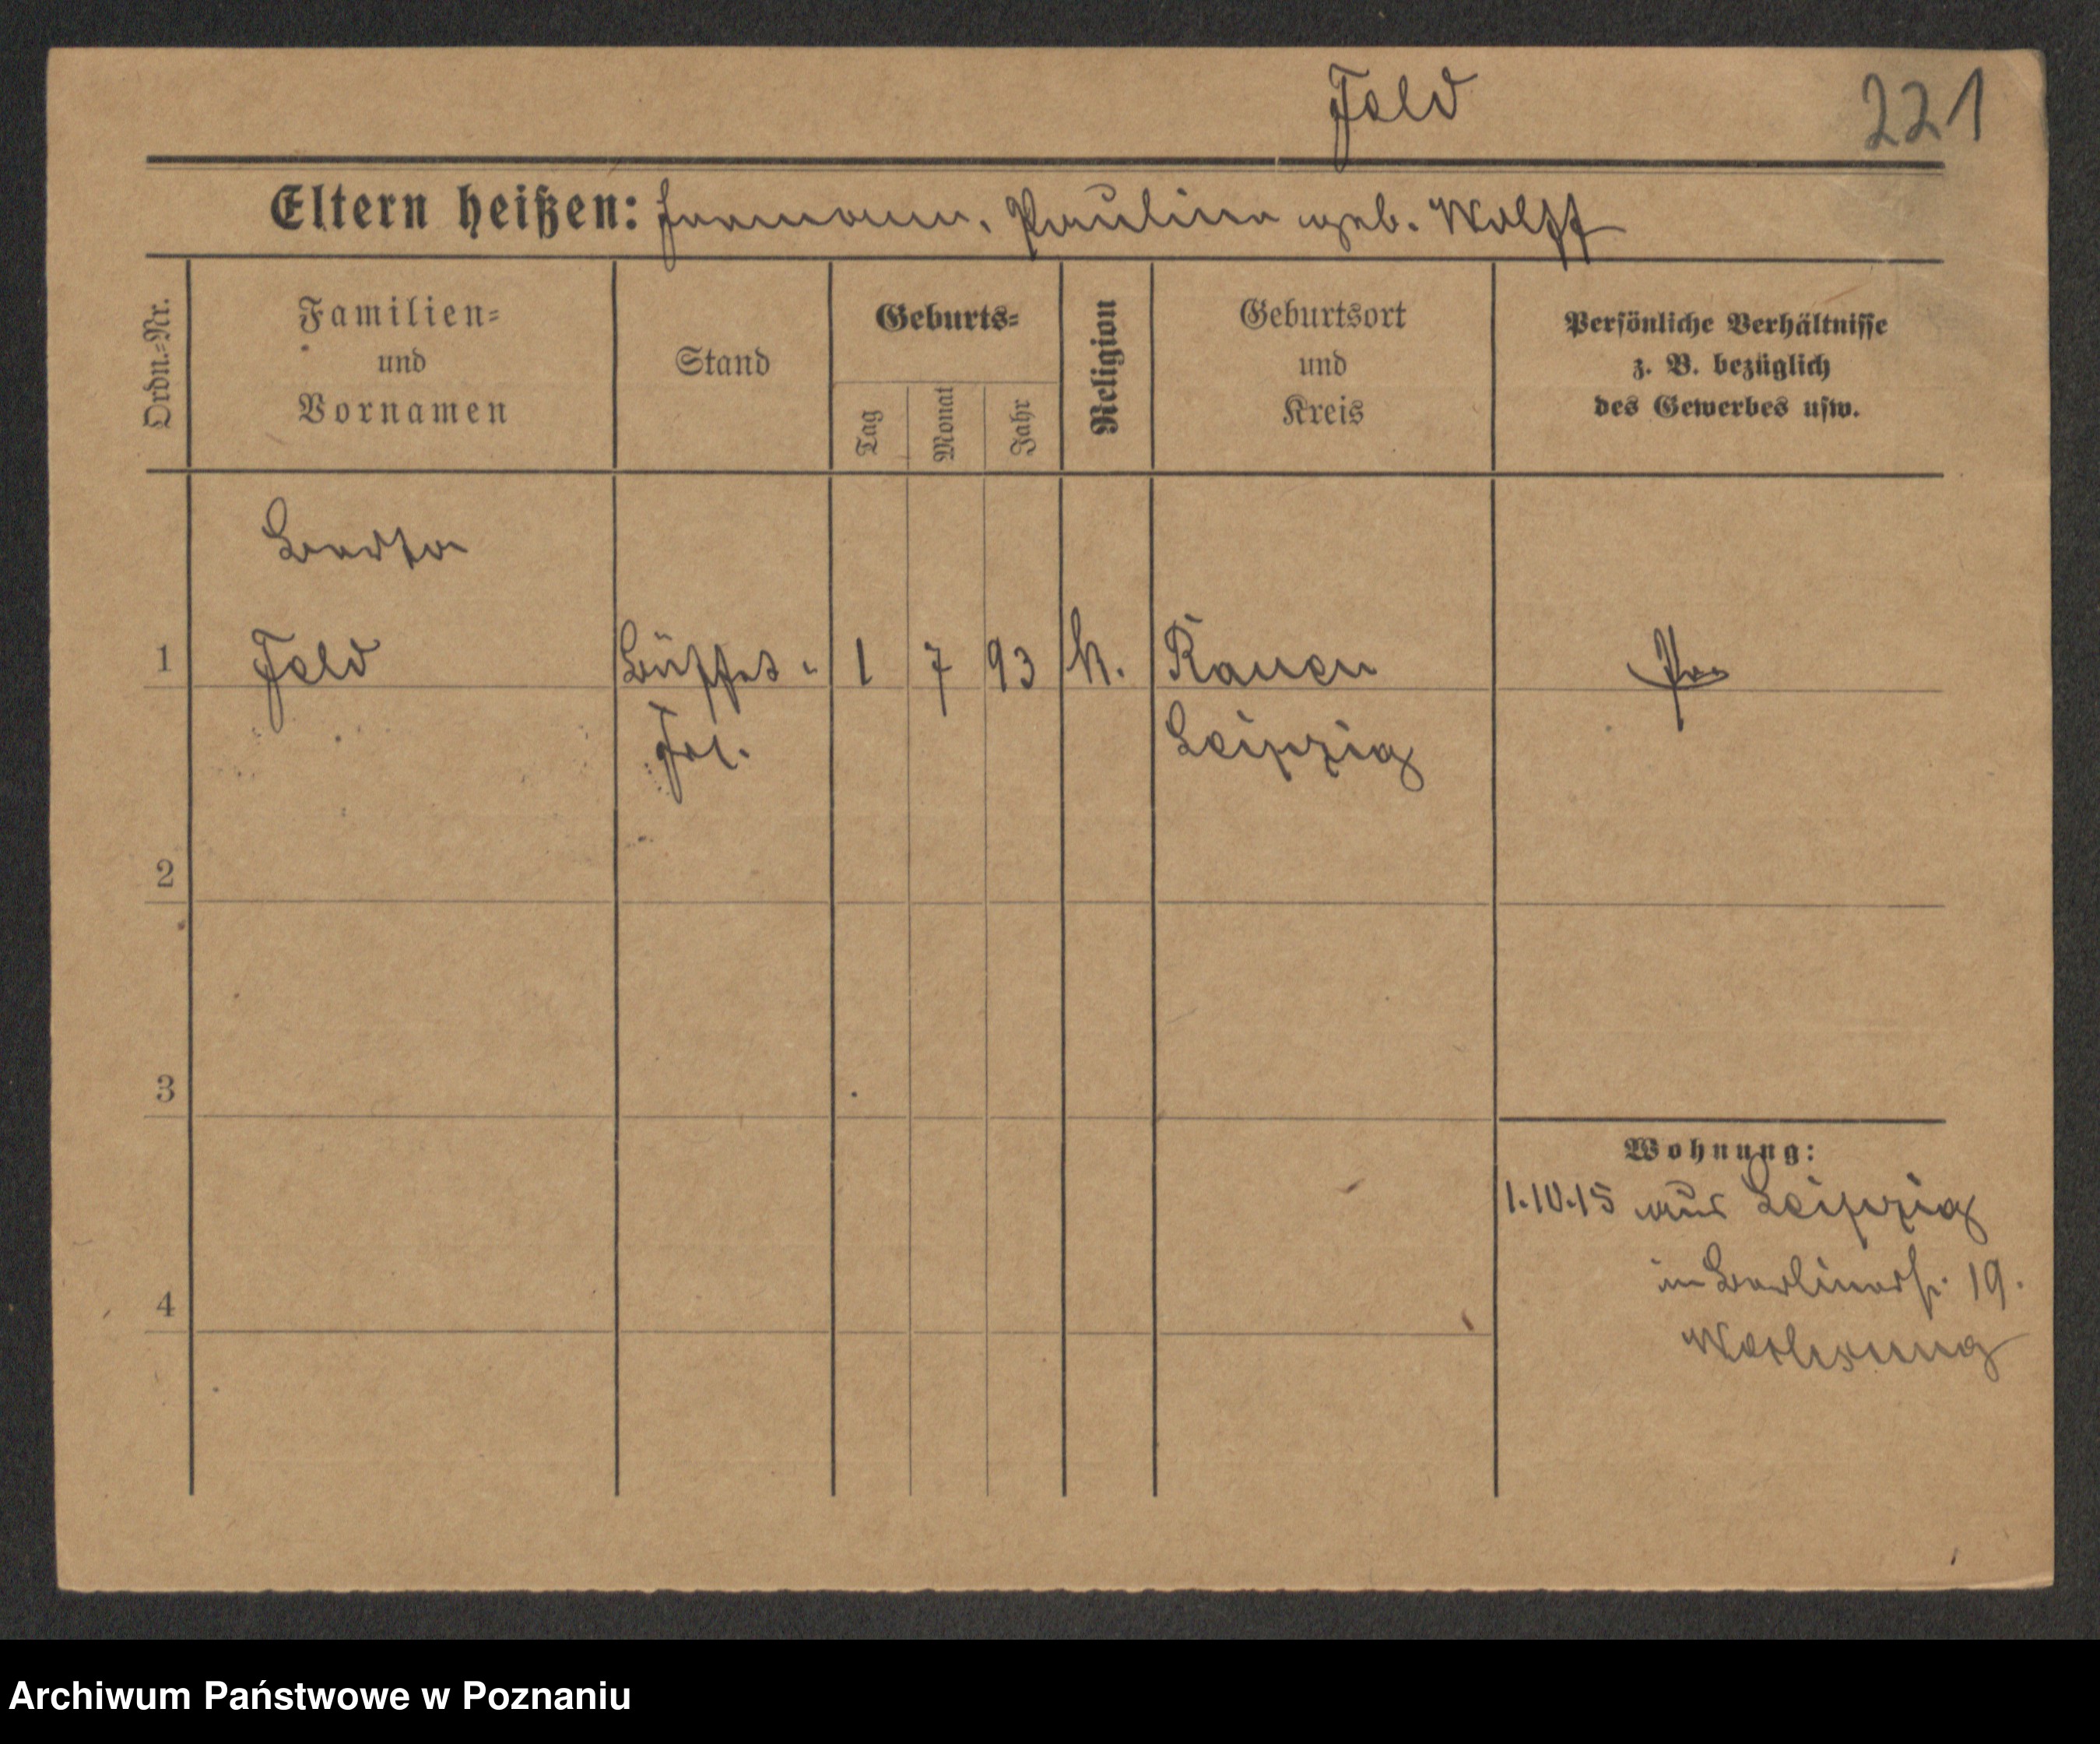 Feld
221
Eltern heißen: Hermann, Pauline geb. Wolff
Ordn.=Nr.
Familien=
und
Vornamen
Stand
Geburts=
Tag
Monat
Jahr
Religion
Geburtsort
und
Kreis
Persönliche Verhältnisse
z. B. bezüglich
des Gewerbes usw.
Berta
1 Feld Büffet- 1 7 93 k. Rauen Pr.
Frl. Leipzig
2
3
4
Wohnung:
1.10.15 aus Leipzig
in Berlinerstr. 19.
Archiwum Państwowe w Poznaniu